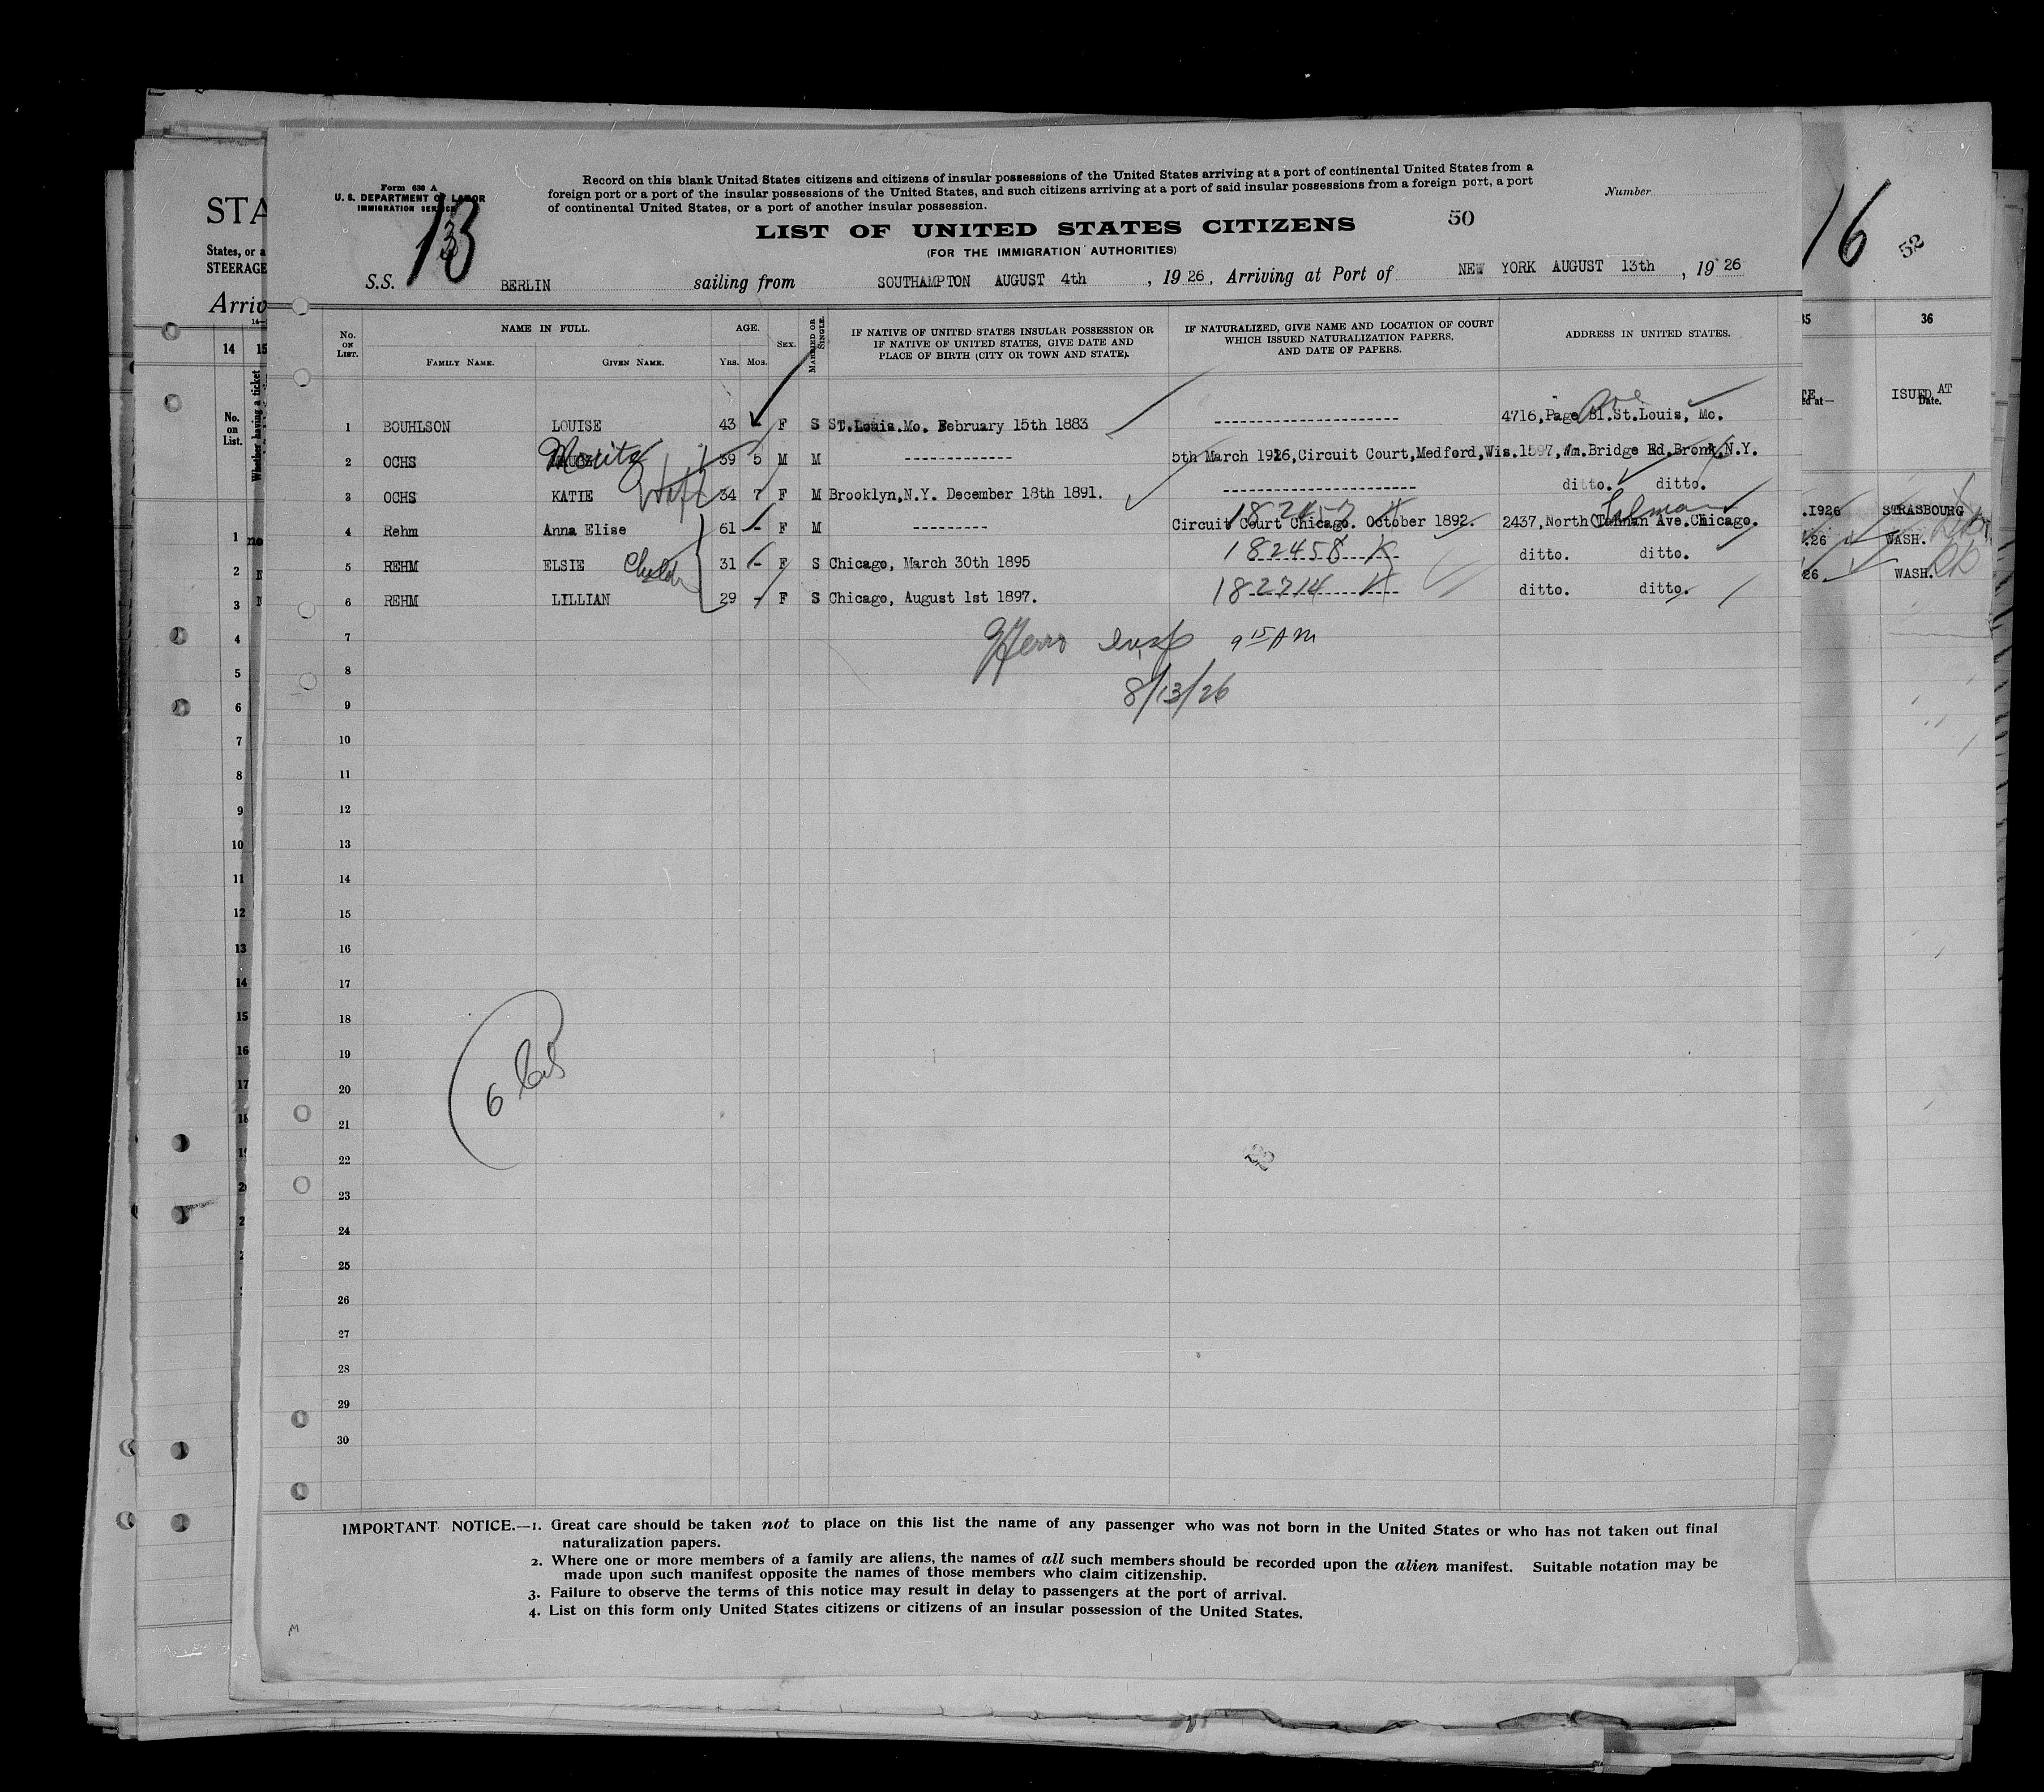 Form 630 A
U. S. DEPARTMENT OF LABOR
IMMIGRATION SERVICE
13
Record on this blank United States citizens and citizens of insular possessions of the United States arriving at a port of continental United States from a
foreign port or a port of the insular possessions of the United States, and such citizens arriving at a port of said insular possessions from a foreign port, a port
of continental United States, or a port of another insular possession.
Number
50
LIST OF UNITED STATES CITIZENS
(FOR THE IMMIGRATION AUTHORITIES)
S.S. BERLIN sailing from SOUTHAMPTON AUGUST 4th , 1926, Arriving at Port of NEW YORK AUGUST 13th , 1926
No. ON LIST. NAME IN FULL. FAMILY NAME. GIVEN NAME. AGE. YRS. MOS. SEX. MARRIED OR SINGLE. IF NATIVE OF UNITED STATES INSULAR POSSESSION OR IF NATIVE OF UNITED STATES, GIVE DATE AND PLACE OF BIRTH (CITY OR TOWN AND STATE). IF NATURALIZED, GIVE NAME AND LOCATION OF COURT WHICH ISSUED NATURALIZATION PAPERS, AND DATE OF PAPERS. ADDRESS IN UNITED STATES.
Ave
1 BOUHLSON LOUISE 43 - F S ST.Louis.Mo. February 15th 1883 -------------------- 4716,Page Bl.St.Louis, Mo.
2 OCHS Moritz 39 5 M M ------------ 5th March 1926,Circuit Court,Medford,Wis.1597,Wm.Bridge Rd.Bronx,N.Y.
3 OCHS KATIE Wife 34 7 F M Brooklyn,N.Y. December 18th 1891. -------------------- ditto. ditto.
182457 Talman
4 Rehm Anna Elise 61 - F M --------- Circuit Court Chicago. October 1892. 2437,North Ave.Chicago.
5 REHM ELSIE 31 - F S Chicago, March 30th 1895 182458 ditto. ditto.
6 REHM LILLIAN 29 - F S Chicago, August 1st 1897. 182714 ditto. ditto.
7
insp 9 15 AM
8
8/13/26
9
10
11
12
13
14
15
16
17
18
19
6
20
21
22
23
24
25
26
27
28
29
30
IMPORTANT NOTICE.—1. Great care should be taken not to place on this list the name of any passenger who was not born in the United States or who has not taken out final
naturalization papers.
2. Where one or more members of a family are aliens, the names of all such members should be recorded upon the alien manifest. Suitable notation may be
made upon such manifest opposite the names of those members who claim citizenship.
3. Failure to observe the terms of this notice may result in delay to passengers at the port of arrival.
4. List on this form only United States citizens or citizens of an insular possession of the United States.
STA
States, or a
STEERAGE
Arriv
14 15
No. on List.
Whether having a ticket
1 no
2
3
4
5
6
7
8
9
10
11
12
13
14
15
16
17
16 52
36
ISSUED AT
Date.
.1926 STRASBOURG
.26 WASH.
26 WASH.